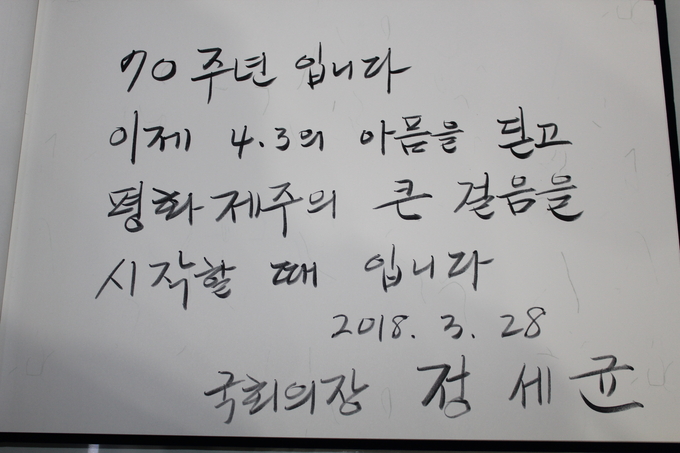 70주년 입니다
이제 4.3의 아픔을 딛고
평화제주의 큰 걸음을
시작할 때 입니다
2018. 3. 28
국회의장 정세균